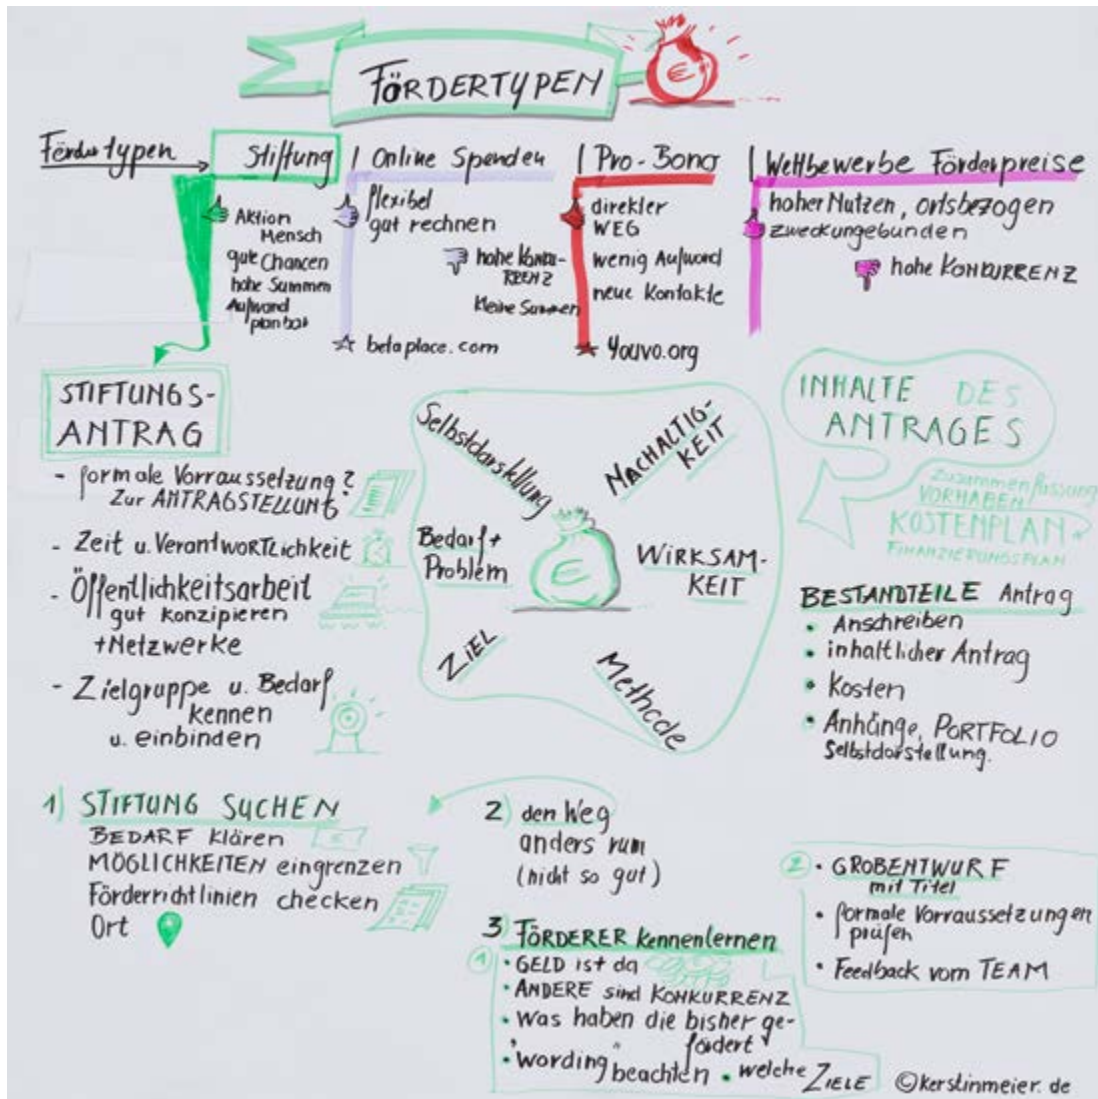 FÖRDERTYPEN
€
Fördertypen
Stiftung
Aktion
Mensch
gute Chancen
hohe Summen
Aufwand
planbar
Online Spenden
flexibel
gut rechnen
hohe KONKU-
RRENZ
kleine Summen
betaplace.com
Pro-Bono
direkter
WEG
wenig Aufwand
neue Kontakte
Youvo.org
Wettbewerbe Förderpreise
hoher Nutzen, ortsbezogen
zweckungebunden
hohe KONKURRENZ
STIFTUNGS-
ANTRAG
- formale Vorraussetzung?
Zur ANTRAGSTELLUNG
- Zeit u. Verantwortlichkeit
- Öffentlichkeitsarbeit
gut konzipieren
+Netzwerke
- Zielgruppe u. Bedarf
kennen
u. einbinden
Selbstdarstellung
NACHALTIG-
KEIT
Bedarf+
Problem
€
WIRKSAM-
KEIT
ZIEL
Methode
INHALTE DES
ANTRAGES
Zusammenfassung
VORHABEN
KOSTENPLAN
FINANZIERUNGSPLAN
BESTANDTEILE Antrag
• Anschreiben
• inhaltlicher Antrag
• Kosten
• Anhänge, PORTFOLIO
Selbstdarstellung.
1) STIFTUNG SUCHEN
BEDARF klären
MÖGLICHKEITEN eingrenzen
Förderrichtlinien checken
Ort
2) den Weg
anders rum
(nicht so gut)
3) FÖRDERER kennenlernen
1
• GELD ist da
• ANDERE sind KONKURRENZ
• Was haben die bisher ge-
fördert
• "wording" beachten • welche ZIELE
2 • GROBENTWURF
mit Titel
• formale Vorraussetzungen
prüfen
• Feedback vom TEAM
©kerstinmeier.de